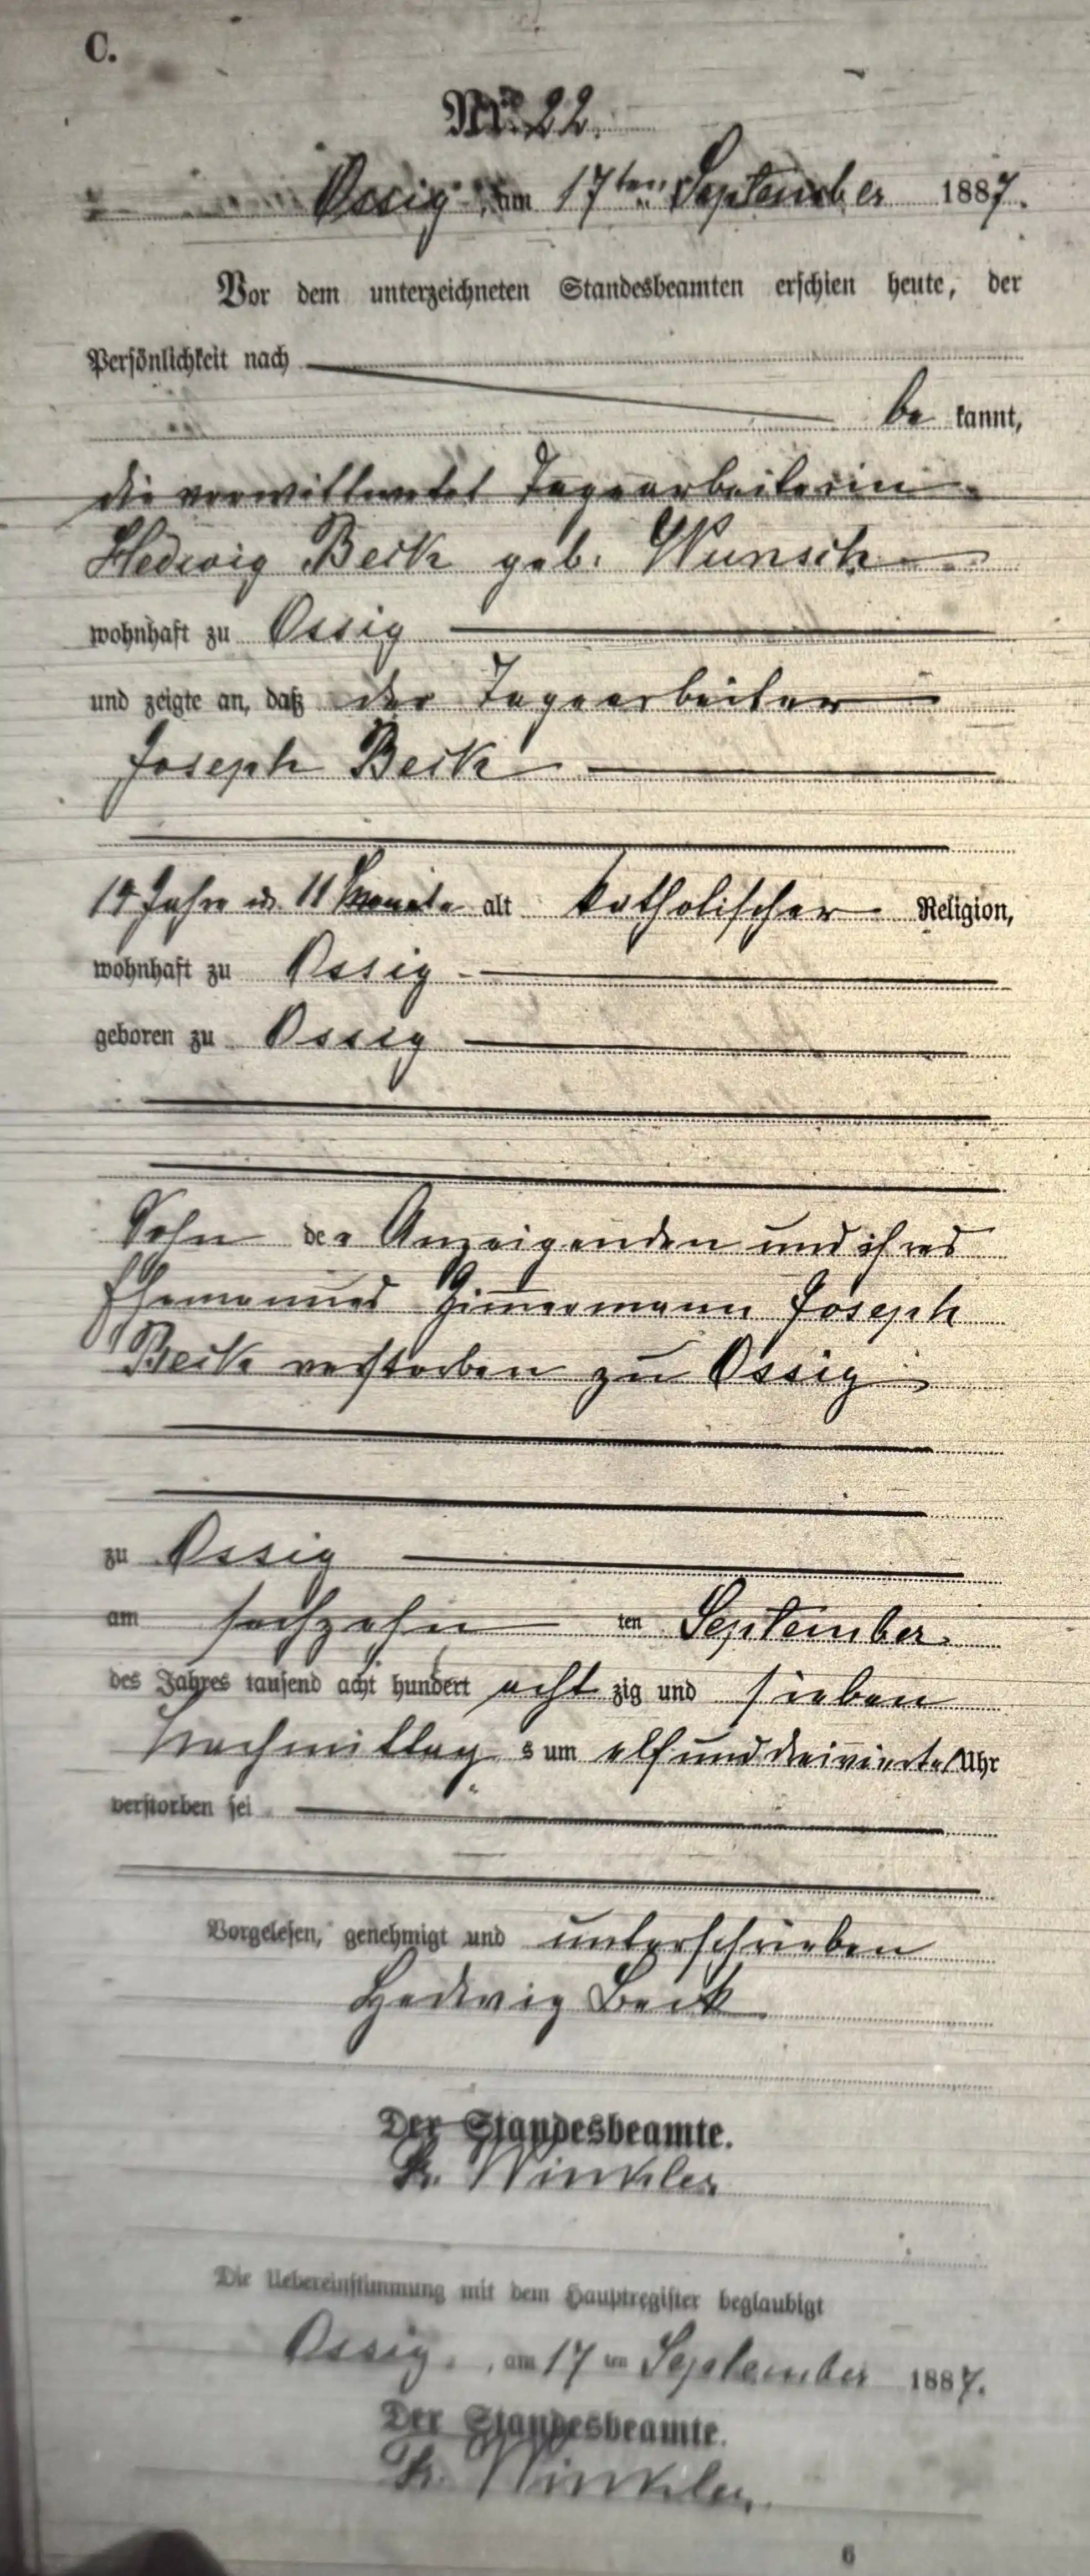 C.
Nr. 22.
Ossig, am 17ten September 1887.
Vor dem unterzeichneten Standesbeamten erschien heute, der
Persönlichkeit nach
be kannt,
die verwittwetet Tagearbeiterin
Hedwig Beik geb. Wunsch
wohnhaft zu Ossig
und zeigte an, daß der Tagearbeiter
Joseph Beik
Jahre u. 11 Monate alt katholischer Religion,
wohnhaft zu Ossig
geboren zu Ossig
Sohn der Anzeigenden und ihres
Ehemannes Zimmermann Joseph
Beik verstorben zu Ossig
zu Ossig
am sechzehn ten September
des Jahres tausend acht hundert acht zig und sieben
Nachmittag s um elf und dreiviertel Uhr
verstorben sei
Vorgelesen, genehmigt und unterschrieben
Hedwig Beik
Der Standesbeamte.
Winkler
Die Uebereinstimmung mit dem Hauptregister beglaubigt
Ossig, am 17 ten September 1887.
Der Standesbeamte.
Winkler
6